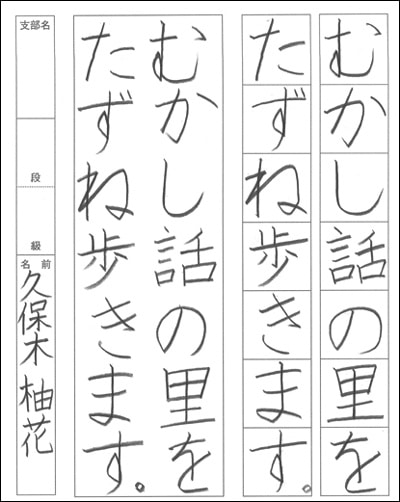 むかし話の里を
たずね歩きます。
むかし話の里を
たずね歩きます。
支部名
段
級
名前
久保木 柚花